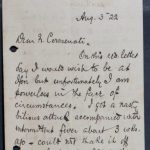 Aug. 3 '22
Dear
On this red letter
day I would wish to be at
but unfortunately I am
powerless in the face of
circumstances. I got a
bilious attack accompanied with
intermittent fever about 3 weeks
ago - could not shake it off